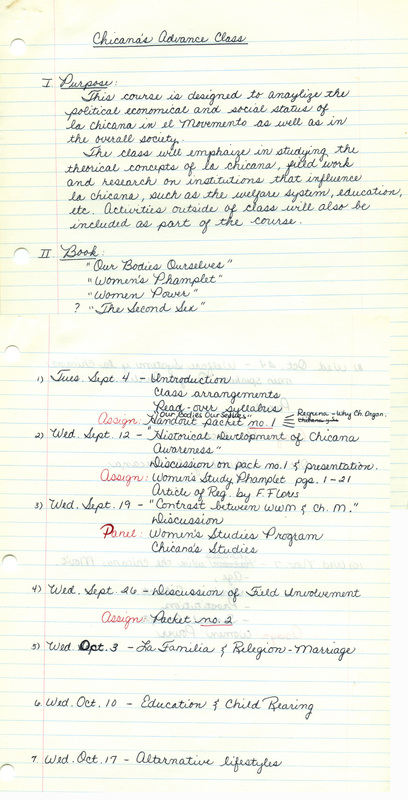 Chicana's Advance Class
I Purpose:
This course is designed to anaylize the
political economical and social status of
la chicana in el Movemento as well as in
the overall society.
The class will emphaize in studying the
theorical concepts of la chicana, field work
and research on institutions that influence
la chicana, such as the welfare system, education,
etc. Activities outside of class will also be
included as part of the course.
II Book:
"Our Bodies Ourselves"
"Women's Phamplet"
"Women Power"
? "The Second Sex"
1) Tues. Sept. 4 - Introduction
Class arrangements
Read-over syllabus
"Our Bodies Our Selves"
Assign: Handout packet no. 1 Regeuna - Why Ch. Organ.
2) Wed. Sept. 12 - "Historical Development of Chicana
Awareness"
Discussion on pack no. 1 & presentation.
Assign: Women's Study Phamplet pgs. 1-21
Article of Reg. by F. Flores
3) Wed. Sept. 19 - "Contrast between WWM & Ch. M."
Discussion
Panel: Women's Studies Program
Chicana's Studies
4) Wed. Sept. 26 - Discussion of Field Involvement
Assign: Packet no. 2
5) Wed. Oct. 3 - La Familia & Religion - Marriage
6. Wed. Oct. 10 - Education & Child Rearing
7. Wed. Oct. 17 - Alternative lifestyles